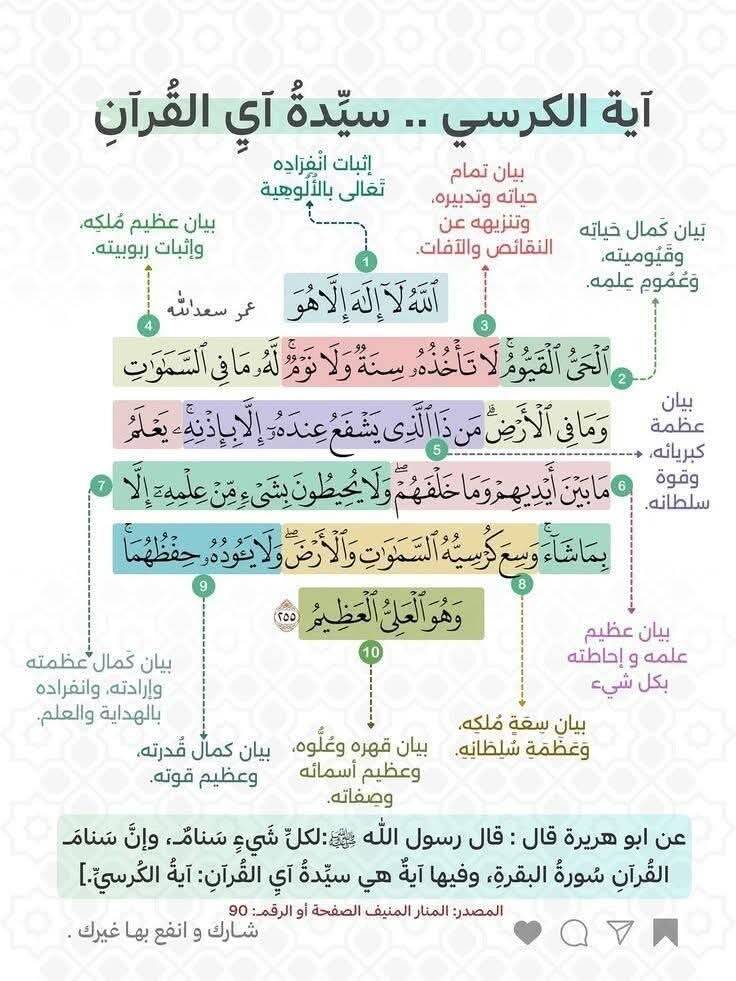 آية الكرسي .. سيِّدةُ آيِ القُرآنِ
إثبات انْفِرَادِه
تَعَالى بالأُلُوهِية
بيان تمام
حياته وتدبيره،
وتنزيهه عن
النقائص والآفات.
بيان عظيم مُلكِه،
وإثبات ربوبيته.
بَيان كَمال حَياتِه
وقَيُوميته،
وَعُمُومِ عِلمِه.
1
ٱللَّهُ لَآ إِلَٰهَ إِلَّا هُوَ
عمر سعدالله
4
3
ٱلْحَىُّ ٱلْقَيُّومُ ۚ لَا تَأْخُذُهُۥ سِنَةٌ وَلَا نَوْمٌ ۚ لَّهُۥ مَا فِى ٱلسَّمَٰوَٰتِ
2
وَمَا فِى ٱلْأَرْضِ ۗ مَن ذَا ٱلَّذِى يَشْفَعُ عِندَهُۥٓ إِلَّا بِإِذْنِهِۦ ۚ يَعْلَمُ
5
بيان
عظمة
كبريائه،
وقوة
سلطانه.
مَا بَيْنَ أَيْدِيهِمْ وَمَا خَلْفَهُمْ ۖ وَلَا يُحِيطُونَ بِشَىْءٍ مِّنْ عِلْمِهِۦٓ إِلَّا
7
6
بِمَا شَآءَ ۚ وَسِعَ كُرْسِيُّهُ ٱلسَّمَٰوَٰتِ وَٱلْأَرْضَ ۖ وَلَا يَـُٔودُهُۥ حِفْظُهُمَا ۚ
9
8
وَهُوَ ٱلْعَلِىُّ ٱلْعَظِيمُ ٢٥٥
10
بيان عظيم
علمه و إحاطته
بكل شيء
بيان كَمال عظمته
وإرادته، وانفراده
بالهداية والعلم.
بيان سِعَةِ مُلكِه،
وَعَظَمَةِ سُلطَانِهِ.
بيان قهره وعُلُوه،
وعظيم أسمائه
وصِفاته.
بيان كمال قُدرته،
وعظيم قوته.
عن ابو هريرة قال : قال رسول الله ﷺ:لكلِّ شَيءٍ سَنامٌ، وإنَّ سَنامَ
القُرآنِ سُورةُ البقرةِ، وفيها آيةٌ هي سيِّدةُ آيِ القُرآنِ: آيةُ الكُرسيِّ.]
المصدر: المنار المنيف الصفحة أو الرقم: 90
شارك و انفع بها غيرك .